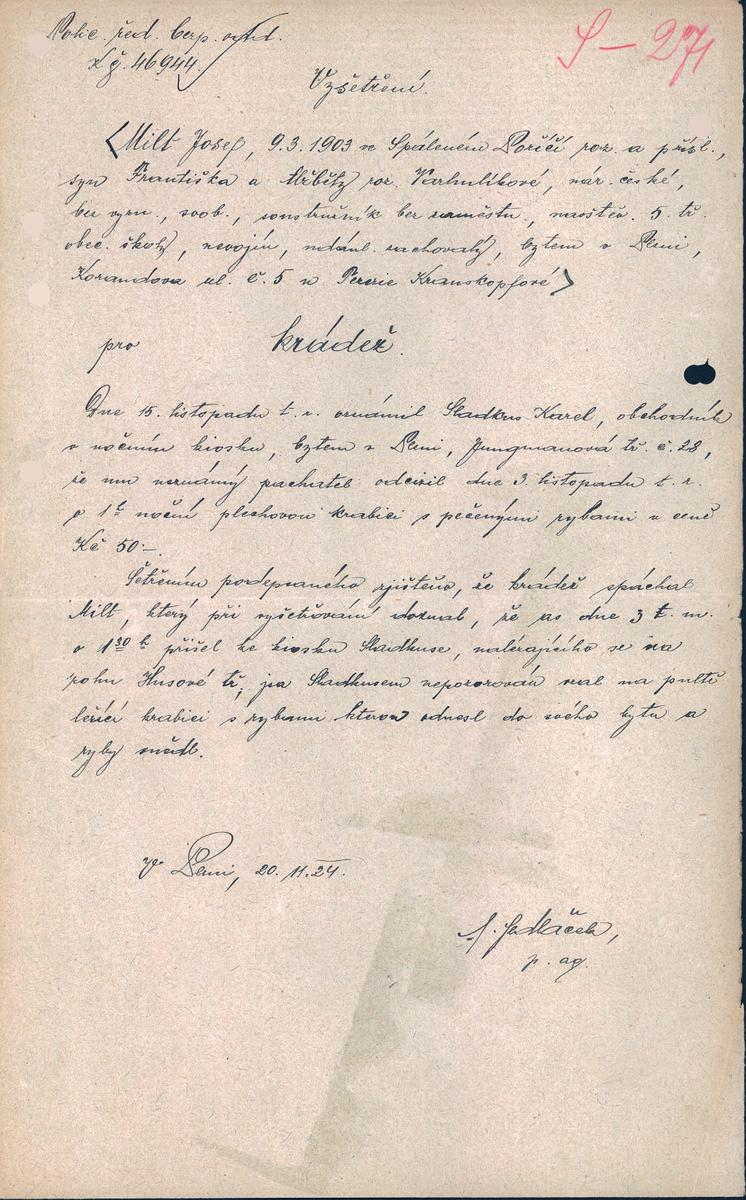 Polic. řed. bezp. odd.
k č. 46944.
S – 271
Vyšetření.
Milt Josef, 9.3.1903 ve Spáleném Poříčí roz. a přísl.,
syn Františka a Alžběty roz. nár. české,
bez vyzn., svob., soustružník bez zaměstn., navštěv. 5. tř.
obec. školy, nevojín, zachovalý, bytem v Plzni,
Korandova ul. č. 5 u Terezie Kranskopfové
pro krádež.
Dne 15. listopadu t. r. oznámil Sladkus Karel, obchodník
v nočním kiosku, bytem v Plzni, Jungmanová tř. č. 28,
že mu neznámý pachatel odcizil dne 3. listopadu t. r.
o 1 h noční plechovou krabici s pečenými rybami v ceně
Kč 50·–.
Šetřením podepsaného zjištěno, že krádež spáchal
Milt, který při vyšetřování doznal, že as dne 3 t. m.
o 1 30 h přišel ke kiosku Sladkuse, nalézajícího se na
rohu Husové tř., jsa Sladkusem nepozorován vzal na pultě
ležící krabici s rybami kterou odnesl do svého bytu a
ryby snědl.
V Plzni, 20.11.24.
Sedláček,
p. ag.